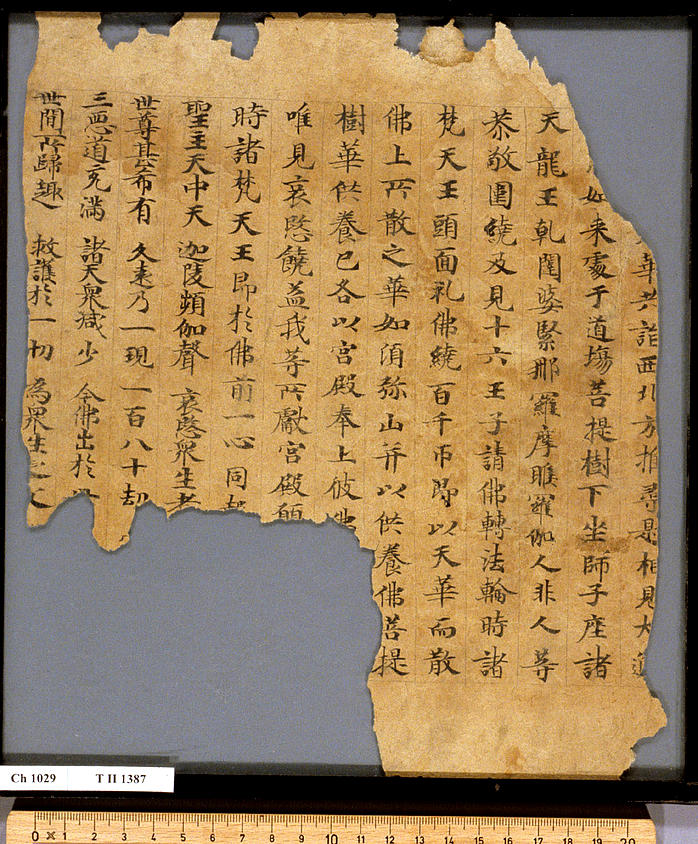 華共詣西北方推尋是相見大通
如来處于道場菩提樹下坐師子座諸
天龍王乹闥婆緊那羅摩睺羅伽人非人等
恭敬圍繞及見十六王子請佛轉法輪時諸
梵天王頭面礼佛繞百千帀即以天華而散
佛上所散之華如須弥山并以供養佛菩提
樹華供養已各以宮殿奉上彼佛
唯見哀愍饒益我等所獻宮殿願
時諸梵天王即於佛前一心同
聖主天中天 迦陵頻伽聲 哀愍衆生者
世尊甚希有 久遠乃一現 一百八十劫
三惡道充滿 諸天衆減少 今佛出於
世間所歸趣 救護於一切 為衆生之
Ch 1029 T II 1387
0 1 2 3 4 5 6 7 8 9 10 11 12 13 14 15 16 17 18 19 20